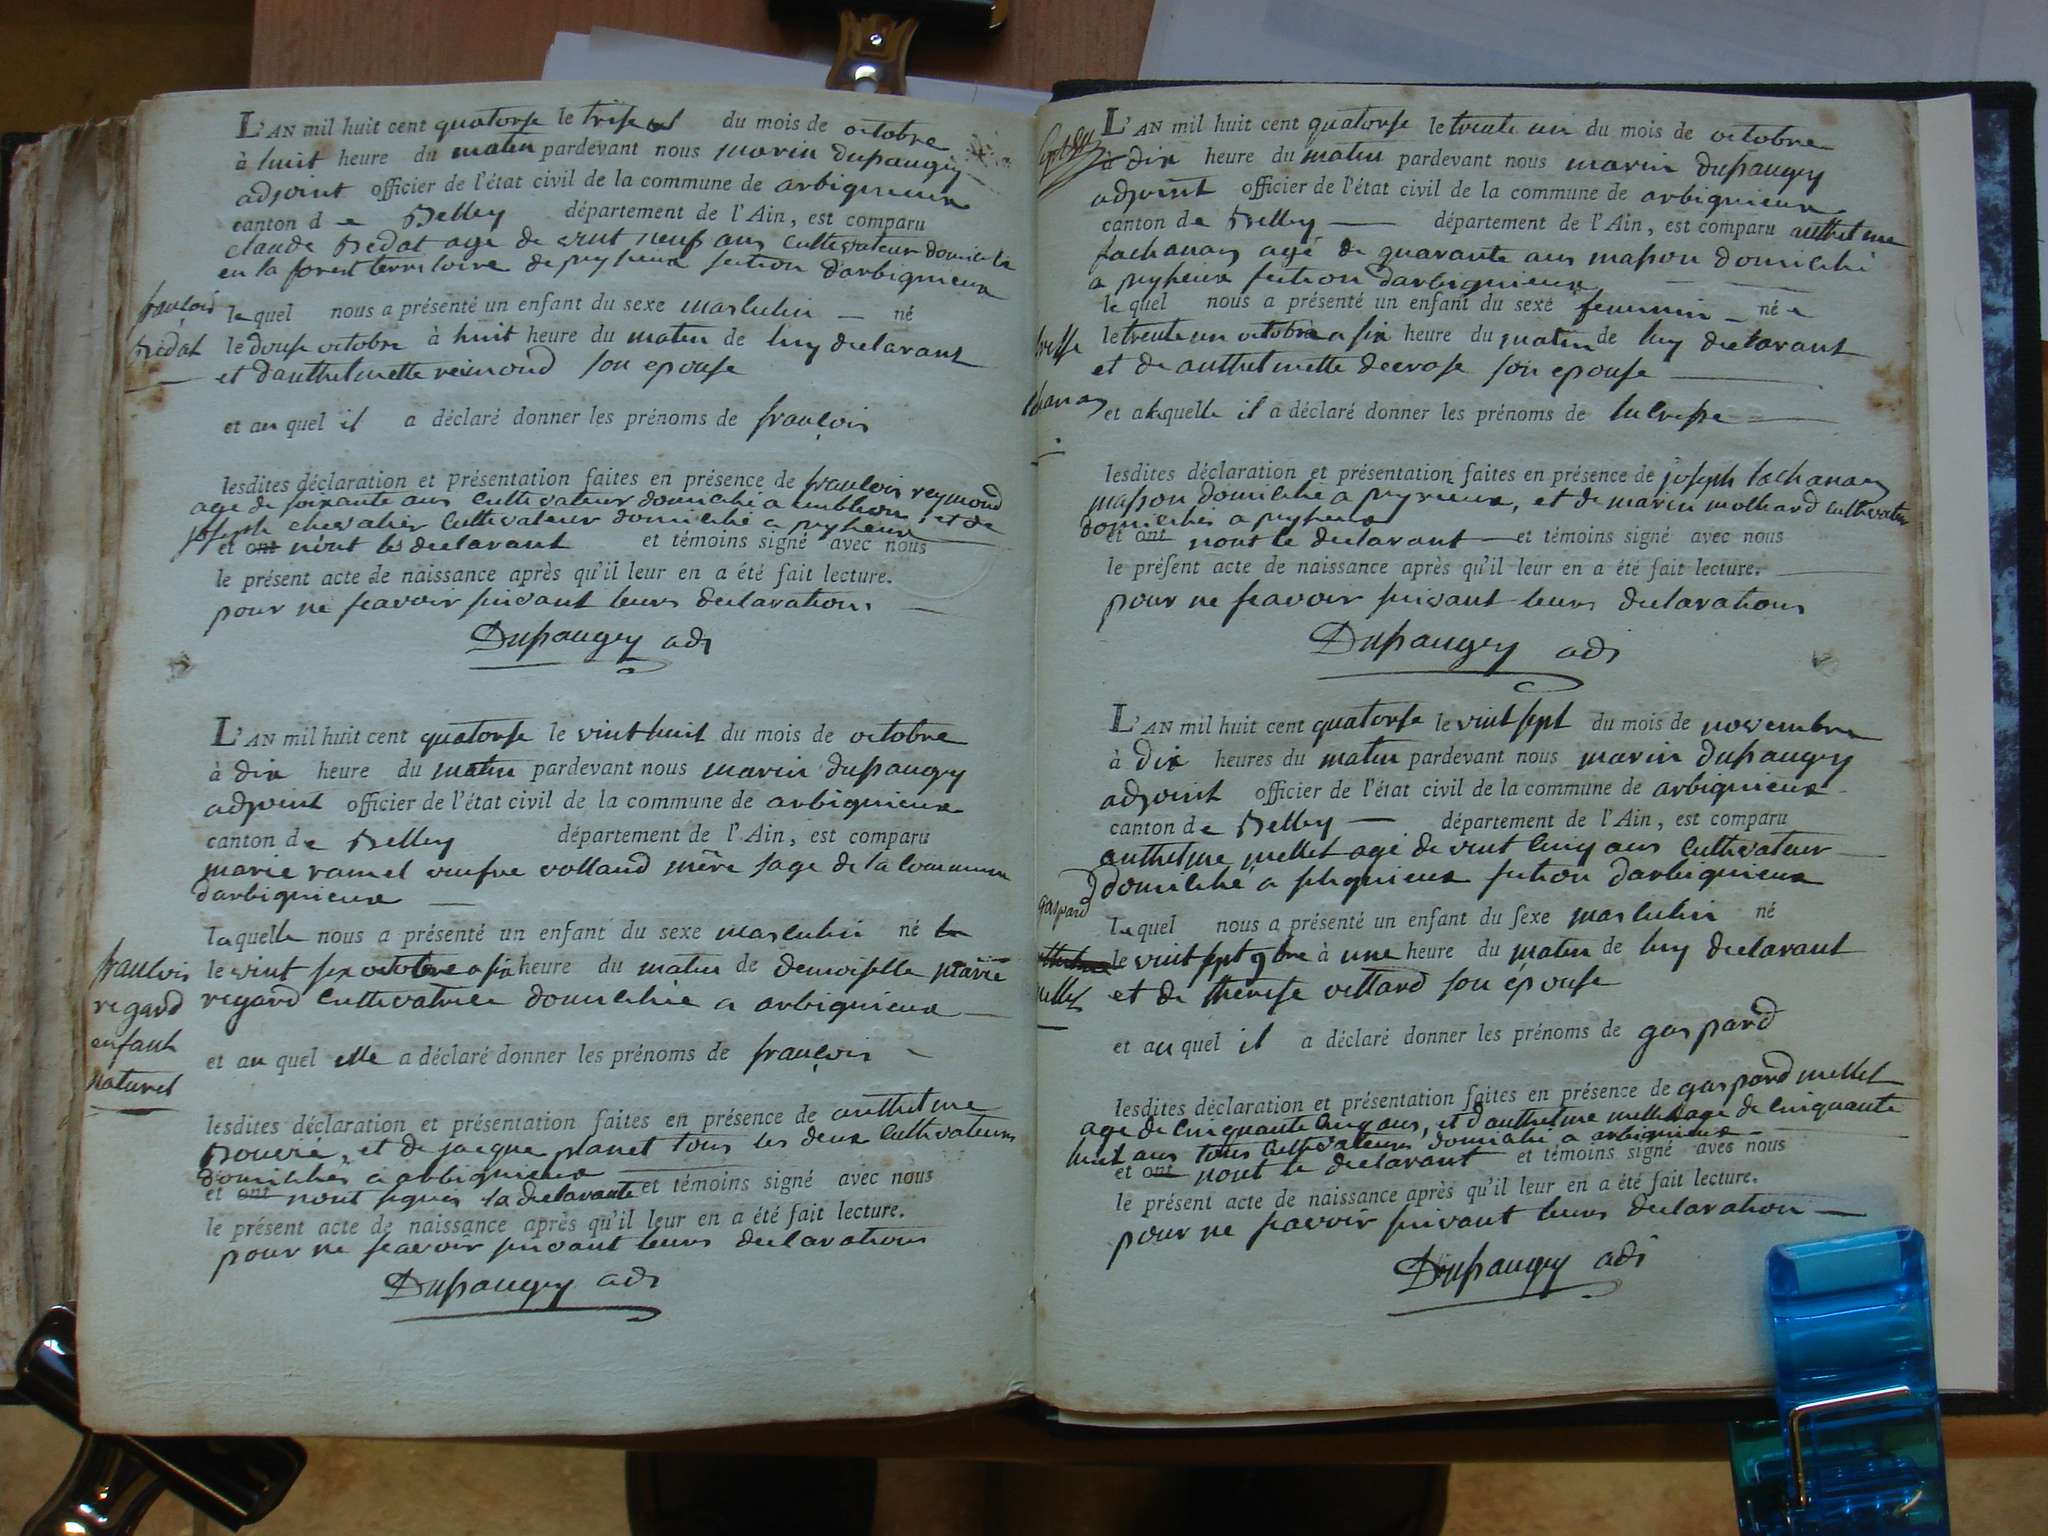 L'AN mil huit cent quatorse le treise du mois de octobre
à huit heure du matin pardevant nous marin dupaugey
adjoint officier de l'état civil de la commune de arbignieux
canton de Belley département de l'Ain, est comparu
claude Bedat age de vint neuf ans cultivateur domicilié
en la forest territoire de peyzieux section d'arbignieux
françois
lequel nous a présenté un enfant du sexe masculin — né
Bedat
le douse octobre à huit heure du matin de luy declarant
et danthelmette reimond son epouse
et au quel il a déclaré donner les prénoms de françois
lesdites déclaration et présentation faites en présence de francois reymond
age de soixante ans cultivateur domicilié a et de
joseph chevalier cultivateur domicilié a peyzieux
et ont n'ont les declarant et témoins signé avec nous
le présent acte de naissance après qu'il leur en a été fait lecture.
pour ne scavoir suivant leurs declarations
Dupaugey adj
L'AN mil huit cent quatorse le vint huit du mois de octobre
à dix heure du matin pardevant nous marin dupaugey
adjoint officier de l'état civil de la commune de arbignieux
canton de Belley département de l'Ain, est comparu
marie ramel veufve volland mère sage de la commune
d'arbignieux
laquelle nous a présenté un enfant du sexe masculin né le
francois
regard
enfant
naturel
le vint six octobre a six heure du matin de demoiselle marie
regard cultivatrice domiciliée a arbignieux
et au quel elle a déclaré donner les prénoms de françois
lesdites déclaration et présentation faites en présence de anthelme
Bouvié, et de jacque planet tous les deux cultivateurs
domiciliés a arbignieux
et ont n'ont signés la declarante et témoins signé avec nous
le présent acte de naissance après qu'il leur en a été fait lecture.
pour ne scavoir suivant leurs declarations
Dupaugey adj
L'AN mil huit cent quatorse le trente un du mois de octobre
à dix heure du matin pardevant nous marin dupaugey
adjoint officier de l'état civil de la commune de arbignieux
canton de Belley — département de l'Ain, est comparu anthelme
lachanas agé de quarante ans masson domicilié
a peyzieux section d'arbignieux
le quel nous a présenté un enfant du sexe feminin — née
le trente un octobre a six heure du matin de luy declarant
et de anthelmette decrose son epouse
et a laquelle il a déclaré donner les prénoms de lucresse
lesdites déclaration et présentation faites en présence de joseph lachanas
masson domicilié a peyrieux, et de marin mollard cultivateur
domiciliés a peyzieux
et ont n'ont le declarant et témoins signé avec nous
le présent acte de naissance après qu'il leur en a été fait lecture.
pour ne scavoir suivant leurs declarations
Dupaugey adj
L'AN mil huit cent quatorse le vint sept du mois de novembre
à dix heures du matin pardevant nous marin dupaugey
adjoint officier de l'état civil de la commune de arbignieux
canton de Belley — département de l'Ain, est comparu
anthelme mellet agé de vint cinq ans cultivateur
domicilié a slignieux section d'arbignieux
gaspard
mellet
le quel nous a présenté un enfant du sexe masculin né
le vint sept 9bre à une heure du matin de luy declarant
et de therese villard son épouse
et au quel il a déclaré donner les prénoms de gaspard
lesdites déclaration et présentation faites en présence de gaspard mellet
age de cinquante cinq ans, et d'anthelme mellet age de cinquante
huit ans tous cultivateurs domicilié a arbignieux
et ont n'ont le declarant et témoins signé avec nous
le présent acte de naissance après qu'il leur en a été fait lecture.
pour ne scavoir suivant leurs declaration
Dupaugey adj